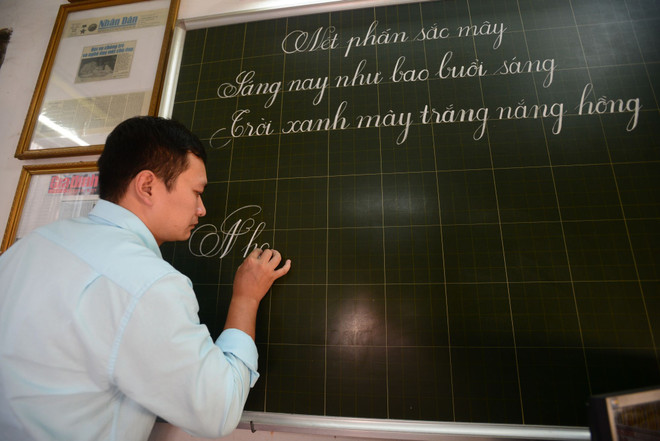 Nhân Dân
Nét phấn sắc mây
Sáng nay như bao buổi sáng
Trời xanh mây trắng nắng hồng
Nh